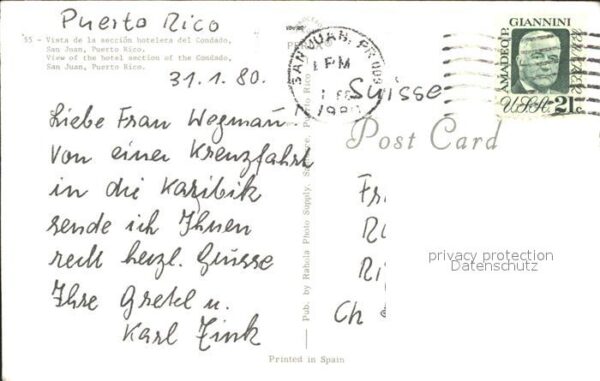 Puerto Rico
55 - Vista de la sección hotelera del Condado,
San Juan, Puerto Rico.
View of the hotel section of the Condado,
San Juan, Puerto Rico.
31.1.80.
SAN JUAN, PR
PM
1980
AMADEO P. GIANNINI
USA 21c
Suisse
Post Card
Liebe Frau Wegmann!
Von einer Kreuzfahrt
in die Karibik
sende ich Ihnen
rech herzl. Grüsse
Ihre Gretel u.
Karl Zink
Fr
Ri
Ch
privacy protection
Datenschutz
Pub. by Rahola Photo Supply, Puerto Rico
Printed in Spain